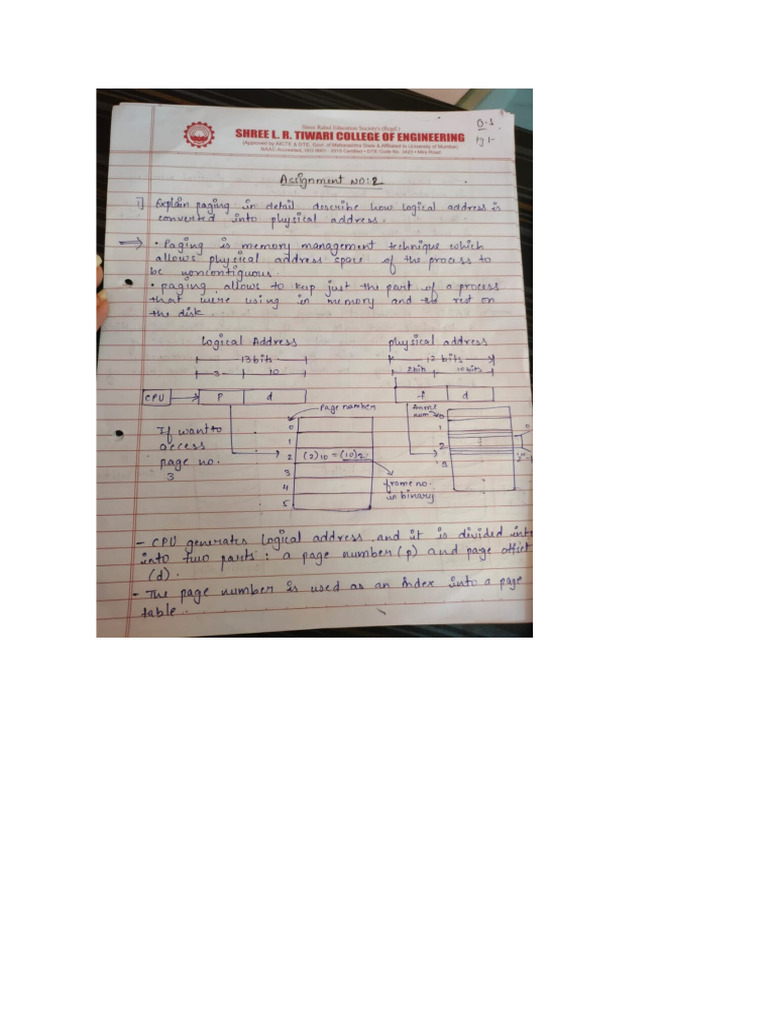 Shree Rahul Education Society's (Regd.)
SHREE L. R. TIWARI COLLEGE OF ENGINEERING
(Approved by AICTE & DTE, Govt. of Maharashtra State & Affiliated to University of Mumbai)
NAAC Accredited, ISO 9001 : 2015 Certified • DTE Code No. 3423 • Mira Road
Q-1
Pg 1-
Assignment NO:2
1] Explain paging in detail describe how logical address is
converted into physical address.
• Paging is memory management technique which
allows physical address space of the process to
be noncontiguous.
• paging allows to keep just the part of a process
that we're using in memory and the rest on
the disk.
Logical Address
physical address
13 bits
12 bits
3
10
2bit
10bits
CPU
P
d
f
d
Page number
frame
num
0
1
2
3
4
5
(2)10 = (10)2
0
1
2
3
If want to
access
page no.
3
frame no.
in binary
- CPU generates logical address and it is divided into
into two parts : a page number (p) and page offset
(d).
- The page number is used as an index into a page
table.